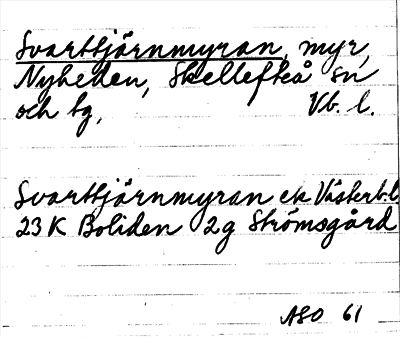 Svarttjärnmyran, myr,
Nyheden, Skellefteå sn
och tg, Vb. l.
Svarttjärnmyran ek Västerb.l
23 K Boliden 2g Strömsgård
ASO 61